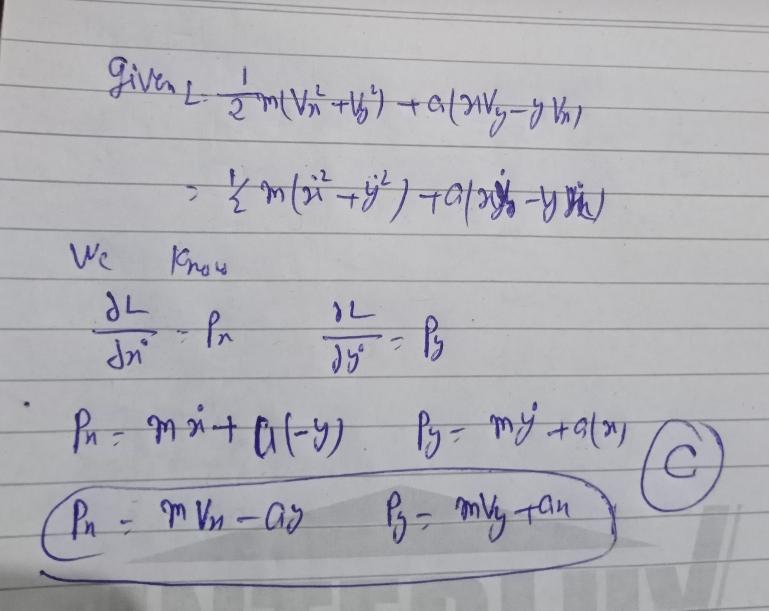 Given L = 1/2 m(Vx² + Vy²) + a(xVy - yVx)
= 1/2 m(ẋ² + ẏ²) + a(xẏ - yẋ)
We Know
∂L/∂ẋ = Px    ∂L/∂ẏ = Py
Px = mẋ + a(-y)    Py = mẏ + a(x)
C
Px = mVx - ay    Py = mVy + ax